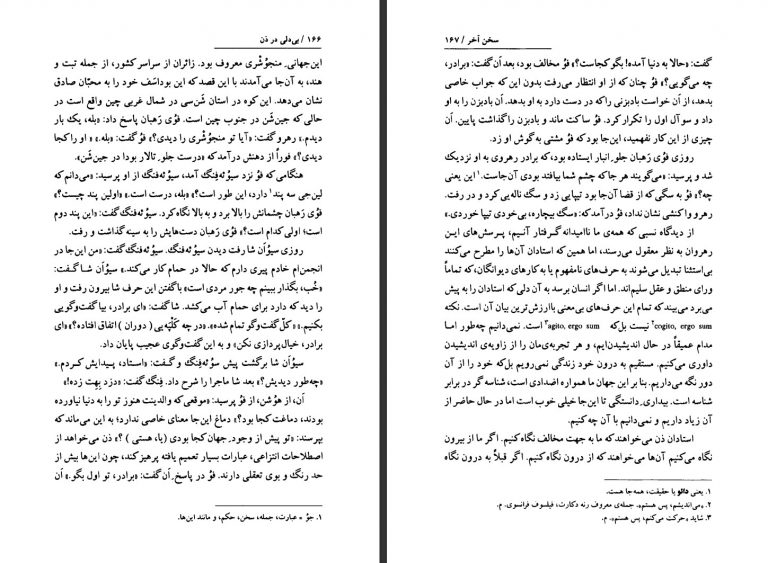 ۱۶۶ / بی‌دلی در ذن
این‌جهانیِ منجوُشْری معروف بود. زائران از سراسر کشور، از جمله تبت و
هند، به آن‌جا می‌آمدند با این قصد که این بوداسَف خود را به محبّان صادق
نشان می‌دهد. این کوه در استان شَن‌سی در شمال غربی چین واقع است در
حالی که جین‌شَن در جنوب چین است. فوُی رَهبان پاسخ داد: «بله، یک بار
دیدم.» رهرو گفت: «آیا تو منجوُشْری را دیدی؟» فوُ گفت: «بله.» «او را کجا
دیدی؟» فوراً از دهنش درآمد که «درست جلوِ تالار بودا در جین‌شَن.»
هنگامی که فوُ نزد سیوُئه‌فِنگ آمد، سیوُئه‌فِنگ از او پرسید: «می‌دانم که
لین‌جی سه پند۱ دارد، این طور است؟» «بله، درست است.» «اولین پند چیست؟»
فوُی رَهبان چشمانش را بالا برد و به بالا نگاه کرد. سیوُئه‌فِنگ گفت: «این پند دوم
است؛ اولی کدام است؟» فوُی رَهبان دست‌هایش را به سینه گذاشت و رفت.
روزی سیوُاَن شا رفت دیدن سیوُئه‌فِنگ. سیوُئه‌فِنگ گفت: «من این‌جا در
انجمن‌ام خادم پیری دارم که حالا در حمام کار می‌کند.» سیوُاَن شا گفت:
«خُب، بگذار ببینم چه جور مردی است» با گفتن این حرف شا بیرون رفت و او
را دید که دارد برای حمام آب می‌کشد. شا گفت: «ای برادر، بیا گفت‌وگویی
بکنیم.» «کلّ گفت‌وگو تمام شده.» «در چه کَلْپه‌یی (دوران) اتفاق افتاده؟» «ای
برادر، خیال‌پردازی نکن» و به این گفت‌وگوی عجیب پایان داد.
سیوُاَن شا برگشت پیش سوئه‌فِنگ و گفت: «استاد، پیدایش کردم.»
«چه‌طور دیدیش؟» بعد شا ماجرا را شرح داد. فِنگ گفت: «دزد بِهِت زده!»
اَن، از هوُشَن، از فوُ پرسید: «موقعی که والدینت هنوز تو را به دنیا نیاورده
بودند، دماغت کجا بود؟» دماغ این‌جا معنای خاصی ندارد؛ به این می‌ماند که
بپرسند: «تو پیش از وجودِ جهان کجا بودی (یا، هستی)؟» ذن می‌خواهد از
اصطلاحات انتزاعی، عبارات بسیار تعمیم یافته پرهیز کند، چون این‌ها بیش از
حد رنگ و بوی تعقلی دارند. فوُ در پاسخِ اَن گفت: «برادر، تو اول بگو.» اَن
۱. جوُ = عبارت، جمله، سخن، حکم، و مانند این‌ها.
سخن آخر / ۱۶۷
گفت: «حالا به دنیا آمده! بگو کجاست؟» فوُ مخالف بود، بعد اَن گفت: «برادر،
چه می‌گویی؟» فوُ چنان که از او انتظار می‌رفت بدون این که جواب خاصی
بدهد، از اَن خواست بادبزنی را که در دست دارد به او بدهد. اَن بادبزن را به او
داد و سوآل اول را تکرار کرد. فوُ ساکت ماند و بادبزن را گذاشت پایین. اَن
چیزی از این کار نفهمید، این‌جا بود که فوُ مشتی به گوش او زد.
روزی فوُی رَهبان جلوِ انبار ایستاده بود، که برادر رهروی به او نزدیک
شد و پرسید: «می‌گویند هر جا که چشم شما بیافتد بودی آن‌جاست.۱ این یعنی
چه؟» فوُ به سگی که از قضا آن‌جا بود تیپایی زد و سگ ناله‌یی کرد و در رفت.
رهرو واکنشی نشان نداد، فوُ درآمد که: «سگ بیچاره، بی‌خودی تیپا خوردی.»
از دیدگاه نسبی که همه‌ی ما ناامیدانه گرفتار آنیم، پرسش‌های این
رهروان به نظر معقول می‌رسند، اما همین که استادان آن‌ها را مطرح می‌کنند
بی‌استثنا تبدیل می‌شوند به حرف‌های نامفهوم یا به کارهای دیوانگان، که تماماً
ورای منطق و عقل سلیم‌اند. اما اگر انسان برسد به آن دلی که استادان را به پیش
می‌برد می‌بیند که تمام این حرف‌های بی‌معنی باارزش‌ترین بیان آن است. نکته
cogito, ergo sum۲ نیست بل‌که agito, ergo sum۳ است. نمی‌دانیم چه‌طور اما
مدام عمیقاً در حال اندیشیدن‌ایم، و هر تجربه‌مان را از زاویه‌ی اندیشیدن
داوری می‌کنیم. مستقیم به درون خود زندگی نمی‌رویم بل‌که خود را از آن
دور نگه می‌داریم. بنا بر این جهان ما همواره اضدادی است، شناسه‌گر در برابر
شناسه است. بیداری‌ِ دانستگی تا این‌جا خیلی خوب است اما در حال حاضر از
آن زیاد داریم و نمی‌دانیم با آن چه کنیم.
استادان ذن می‌خواهند که ما به جهت مخالف نگاه کنیم. اگر ما از بیرون
نگاه می‌کنیم آن‌ها می‌خواهند که از درون نگاه کنیم. اگر قبلاً به درون نگاه
۱. یعنی دائو یا حقیقت، همه‌جا هست.
۲. «می‌اندیشم، پس هستم»، جمله‌ی معروف رنه دکارت، فیلسوف فرانسوی. م.
۳. شاید «حرکت می‌کنم، پس هستم». م.